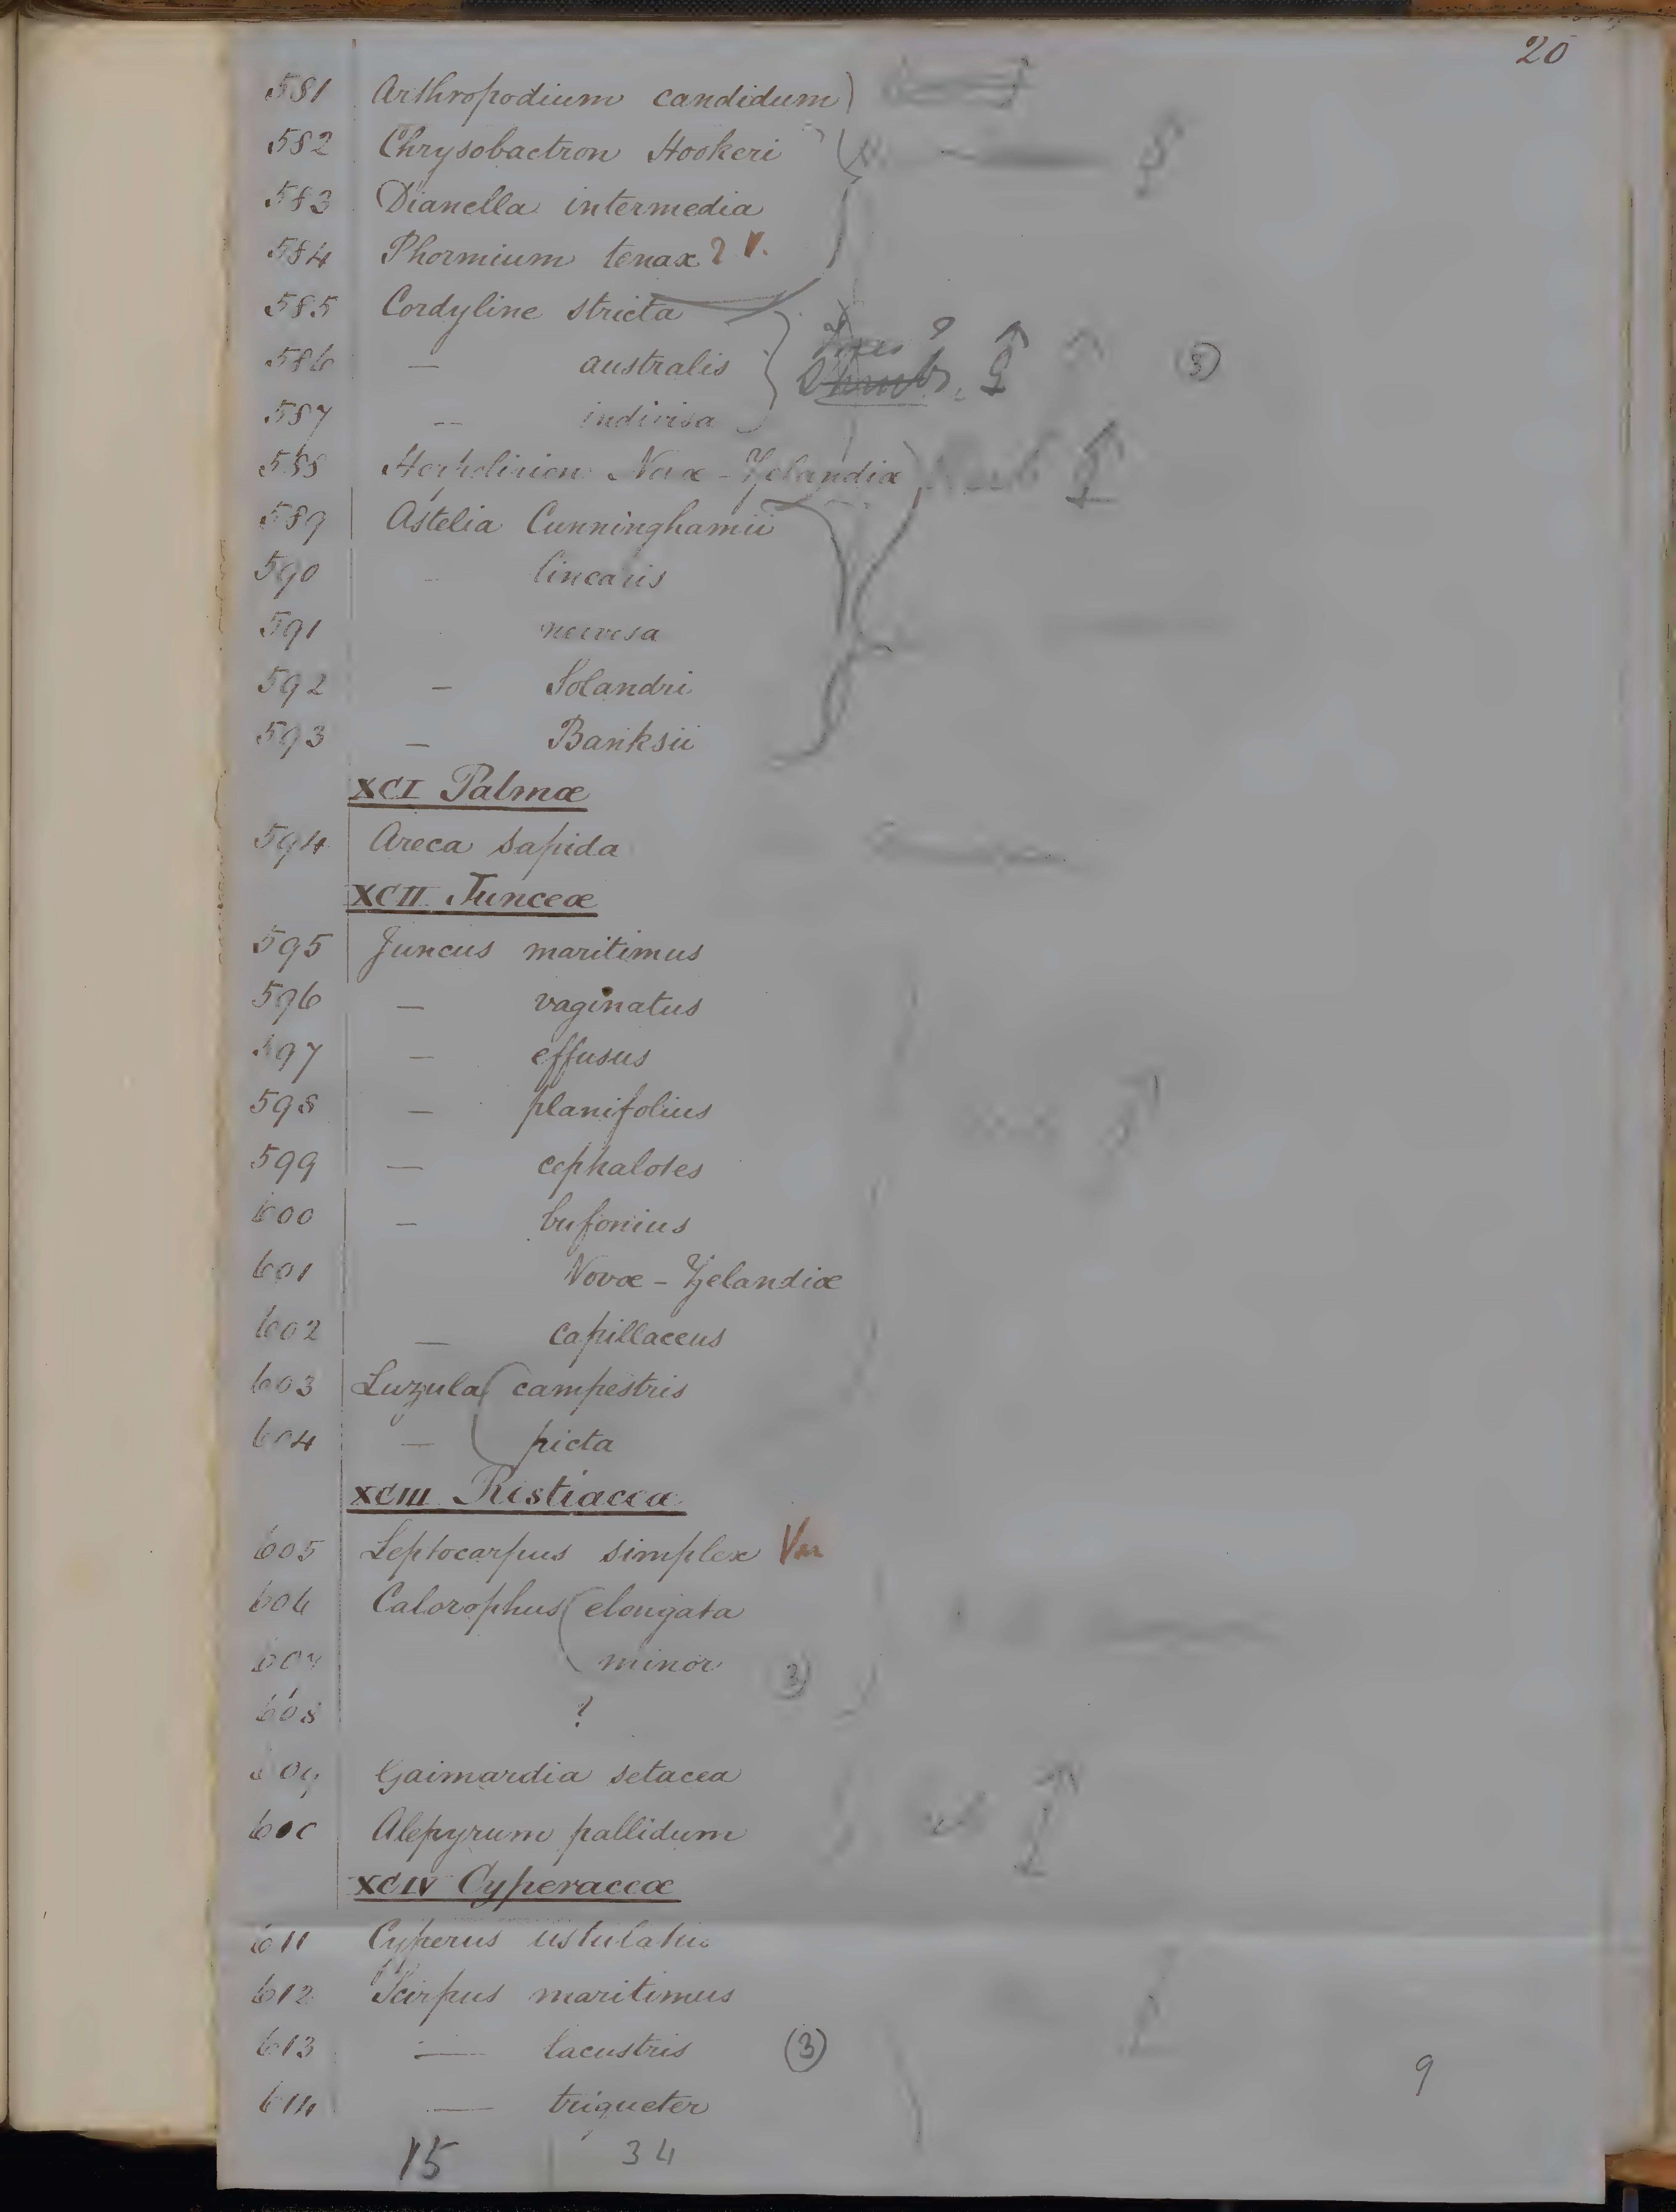 20
581 Arthropodium candidum
582 Chrysobactron Hookeri
583 Dianella intermedia
584 Phormium tenax ? V.
585 Cordyline stricta
586 — australis ? (3)
587 — indivisa
588 Herpolirion Novæ-Zelandiæ
589 Astelia Cunninghamii
590 – linearis
591 nervosa
592 – Solandri
593 – Banksii
XCI Palmæ
594 Areca sapida
XCII Junceæ
595 Juncus maritimus
596 — vaginatus
597 — effusus
598 — planifolius
599 — cephalotes
600 — bufonius
601 Novæ-Zelandiæ
602 — capillaceus
603 Luzula campestris
604 — picta
XCIII Restiacea
605 Leptocarpus simplex
606 Calorophus elongata
607 minor (3)
608 ?
609 Gaimardia setacea
600 Alepyrum pallidum
XCIV Cyperaceæ
611 Cyperus ustulatus
612 Scirpus maritimus
613 — lacustris (3)
614 — triqueter
9
15 34